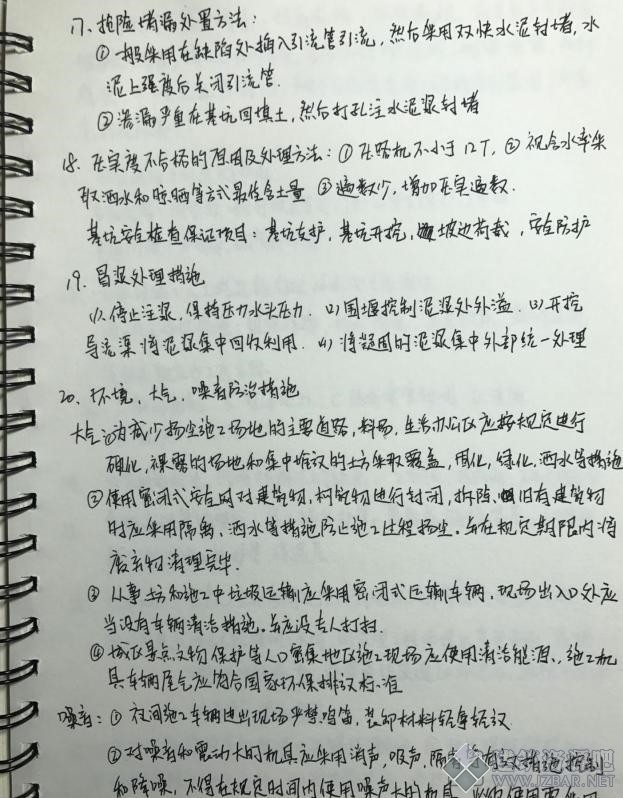 17、抢险堵漏处置方法:
① 一般采用在缺陷处插入引流管引流,然后采用双快水泥封堵,水
泥上强度后关闭引流管.
②渗漏严重在基坑回填土,然后打孔注水泥浆封堵
18、压实度不合格的原因及处理方法:①压路机不小于12T,②视含水率采
取洒水和晾晒等方式最佳含土量 ③遍数少,增加压实遍数.
基坑安全检查保证项目:基坑支护,基坑开挖,坡边荷载,安全防护
19、冒浆处理措施
(1)、停止注浆,保持压力水头压力. (2)围堰控制泥浆处外溢. (3)开挖
导流渠将泥浆集中回收利用. (4)将凝固的泥浆集中外部统一处理
20、环境、大气,噪音防治措施
大气:①为减少扬尘施工场地的主要道路,料场,生活办公区应按规定进行
硬化,裸露的场地和集中堆议的土方采取覆盖,固化,绿化,洒水等措施
②使用密闭式安全网对建筑物,构筑物进行封闭,拆除旧有建筑物
时应采用隔离,洒水等措施防止施工过程扬尘.并在规定期限内将
废弃物清理完毕.
③ 从事土方和施工中垃圾运输应采用密闭式运输车辆,现场出入口处应
当设有车辆清洁措施.并应设专人打扫.
④城区景点文物保护等人口密集地区施工现场应使用清洁能源.,施工机
具车辆尾气应符合国家环保排议标准
噪音:①夜间施工车辆进出现场严禁鸣笛,装卸材料轻拿轻议
②对噪音和震动大的机具应采用消声,吸声,隔音等有效措施控制
和降噪,不得在规定时间内使用噪声大的机具
建筑资源吧
WWW.JZBAR.NET